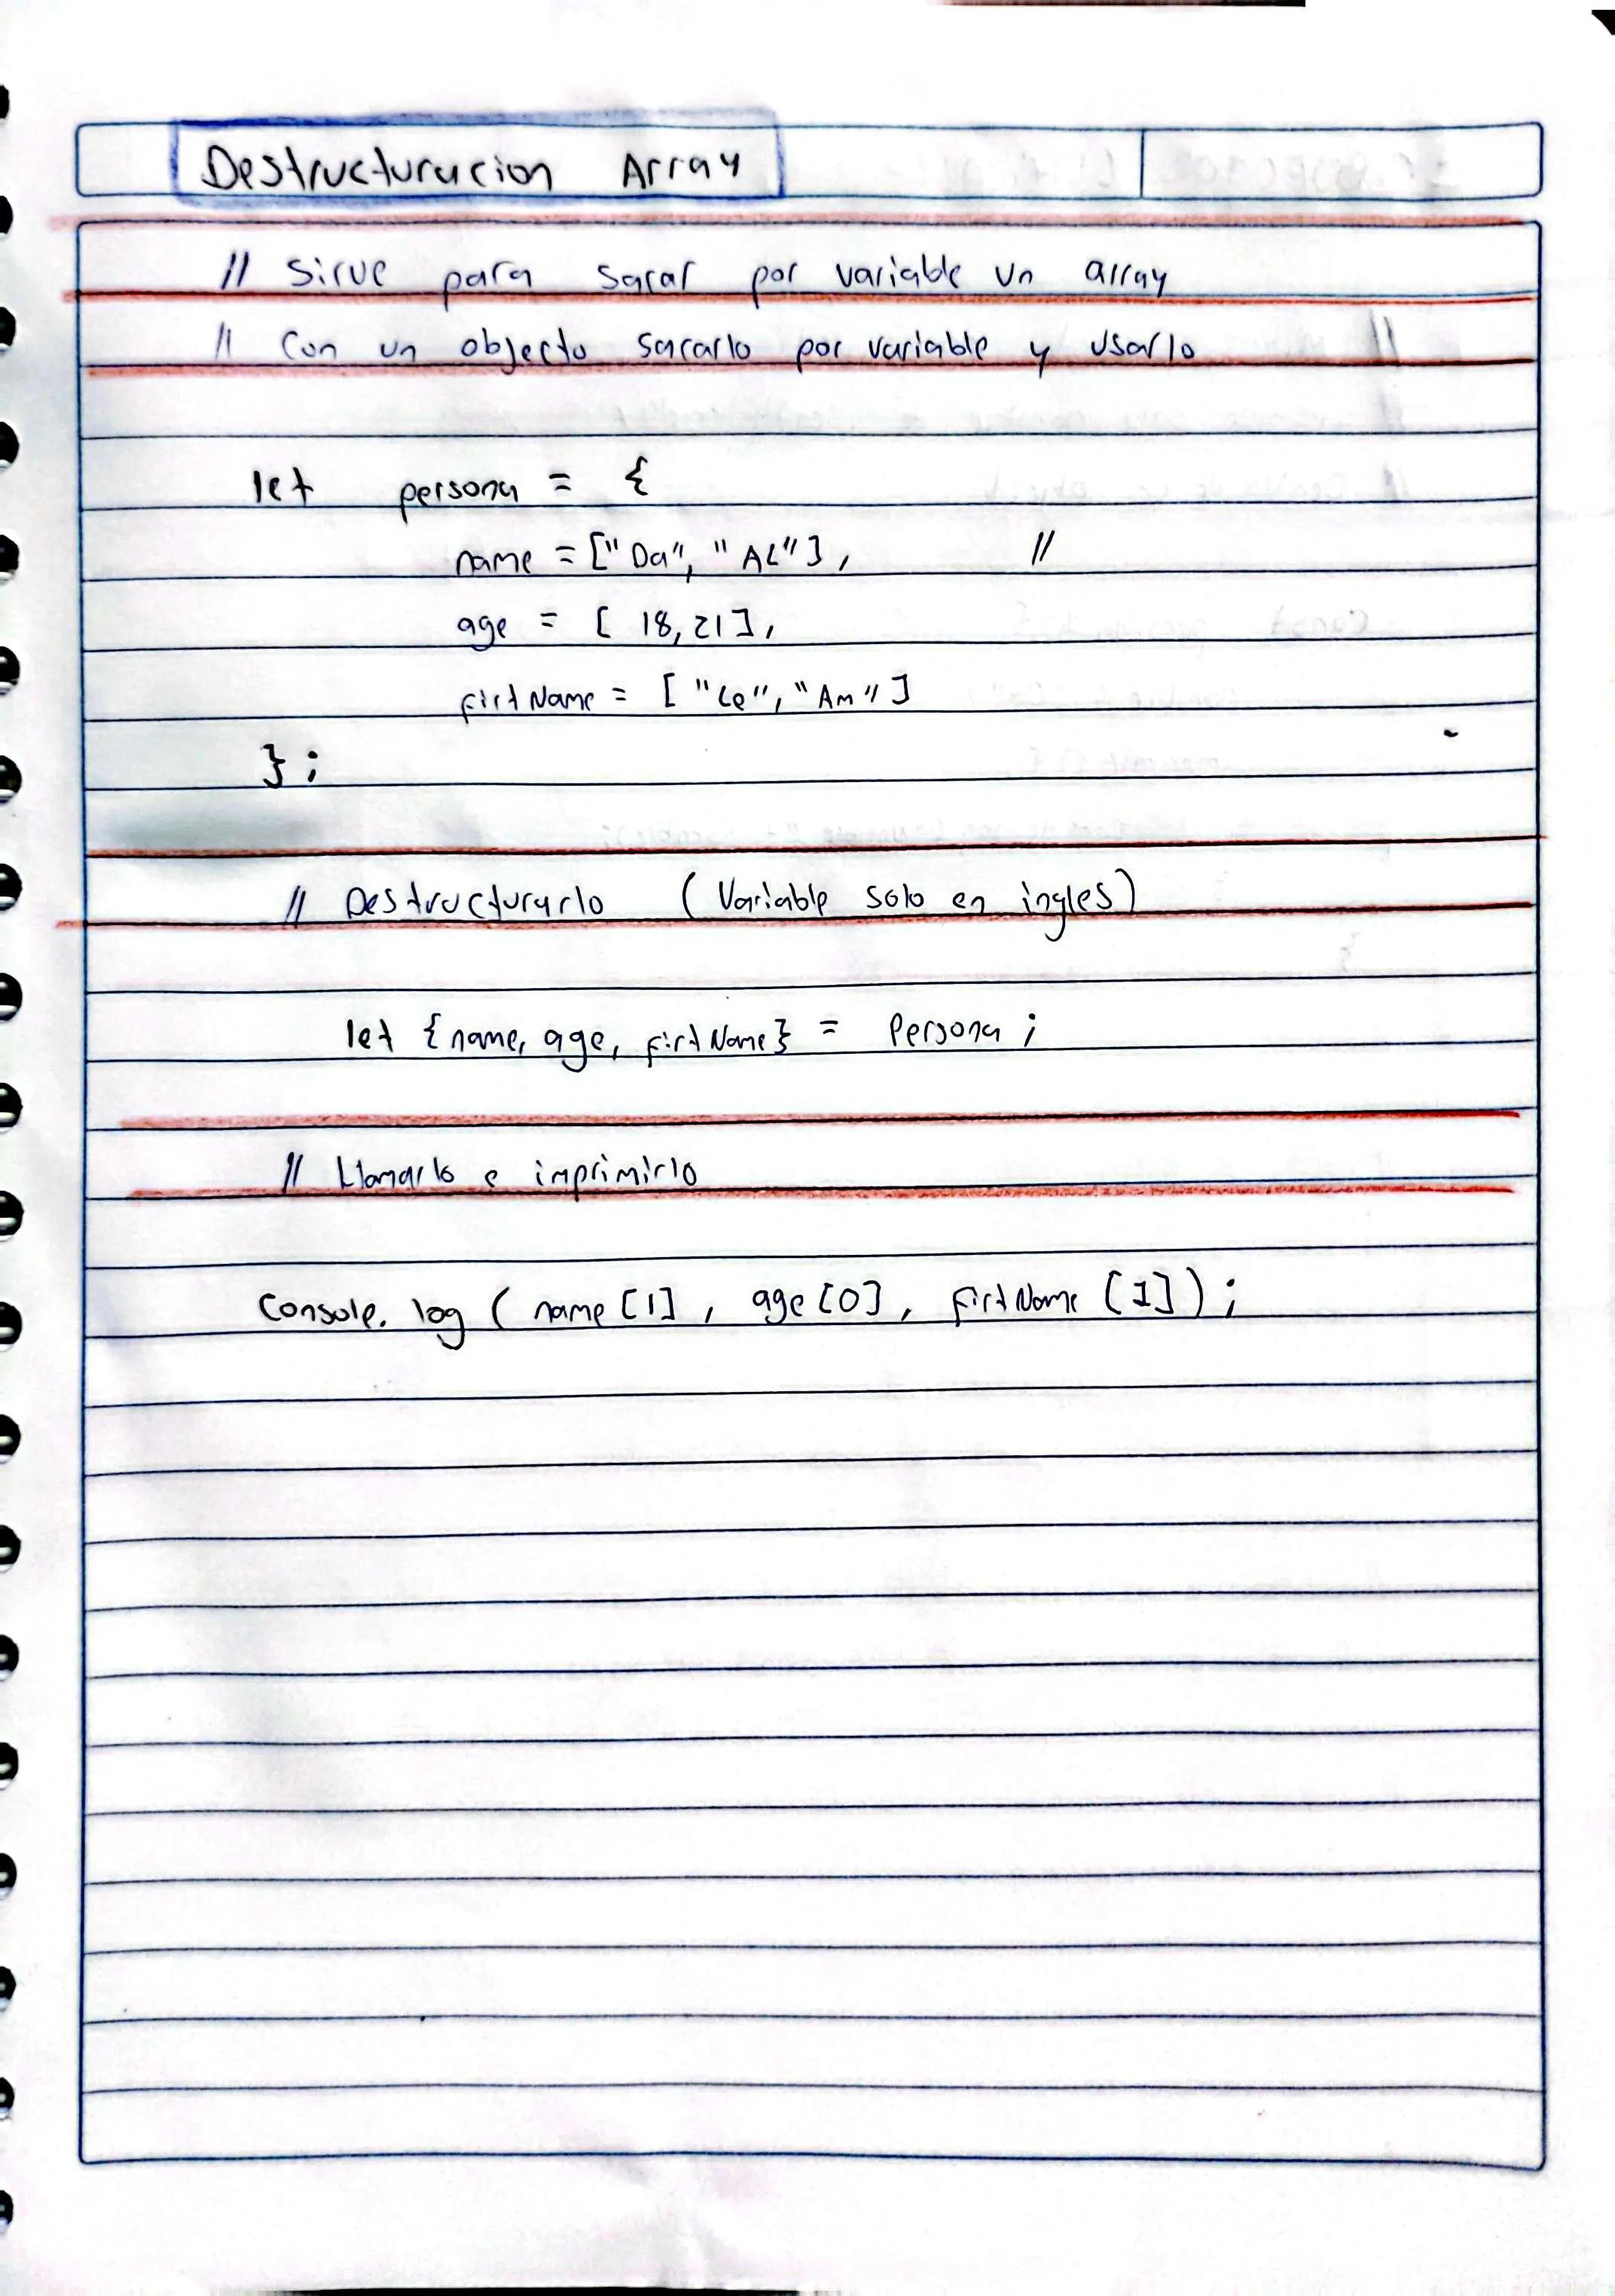 Destructuracion Array
// Sirve para sacar por variable un array
// Con un objecto sacarlo por variable y usarlo
let persona = {
name = ["Da", "AL"], //
age = [ 18, 21],
firtName = [ "Le", "Am" ]
};
// Destructurarlo (Variable solo en ingles)
let {name, age, firtName} = Persona ;
// Llamarlo e imprimirlo
Console. log ( name [1] , age [0] , firtName [1] ) ;